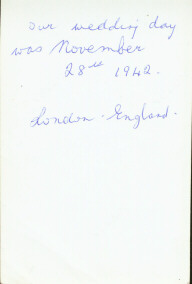 our wedding day
was November
28th 1942.
London - England.